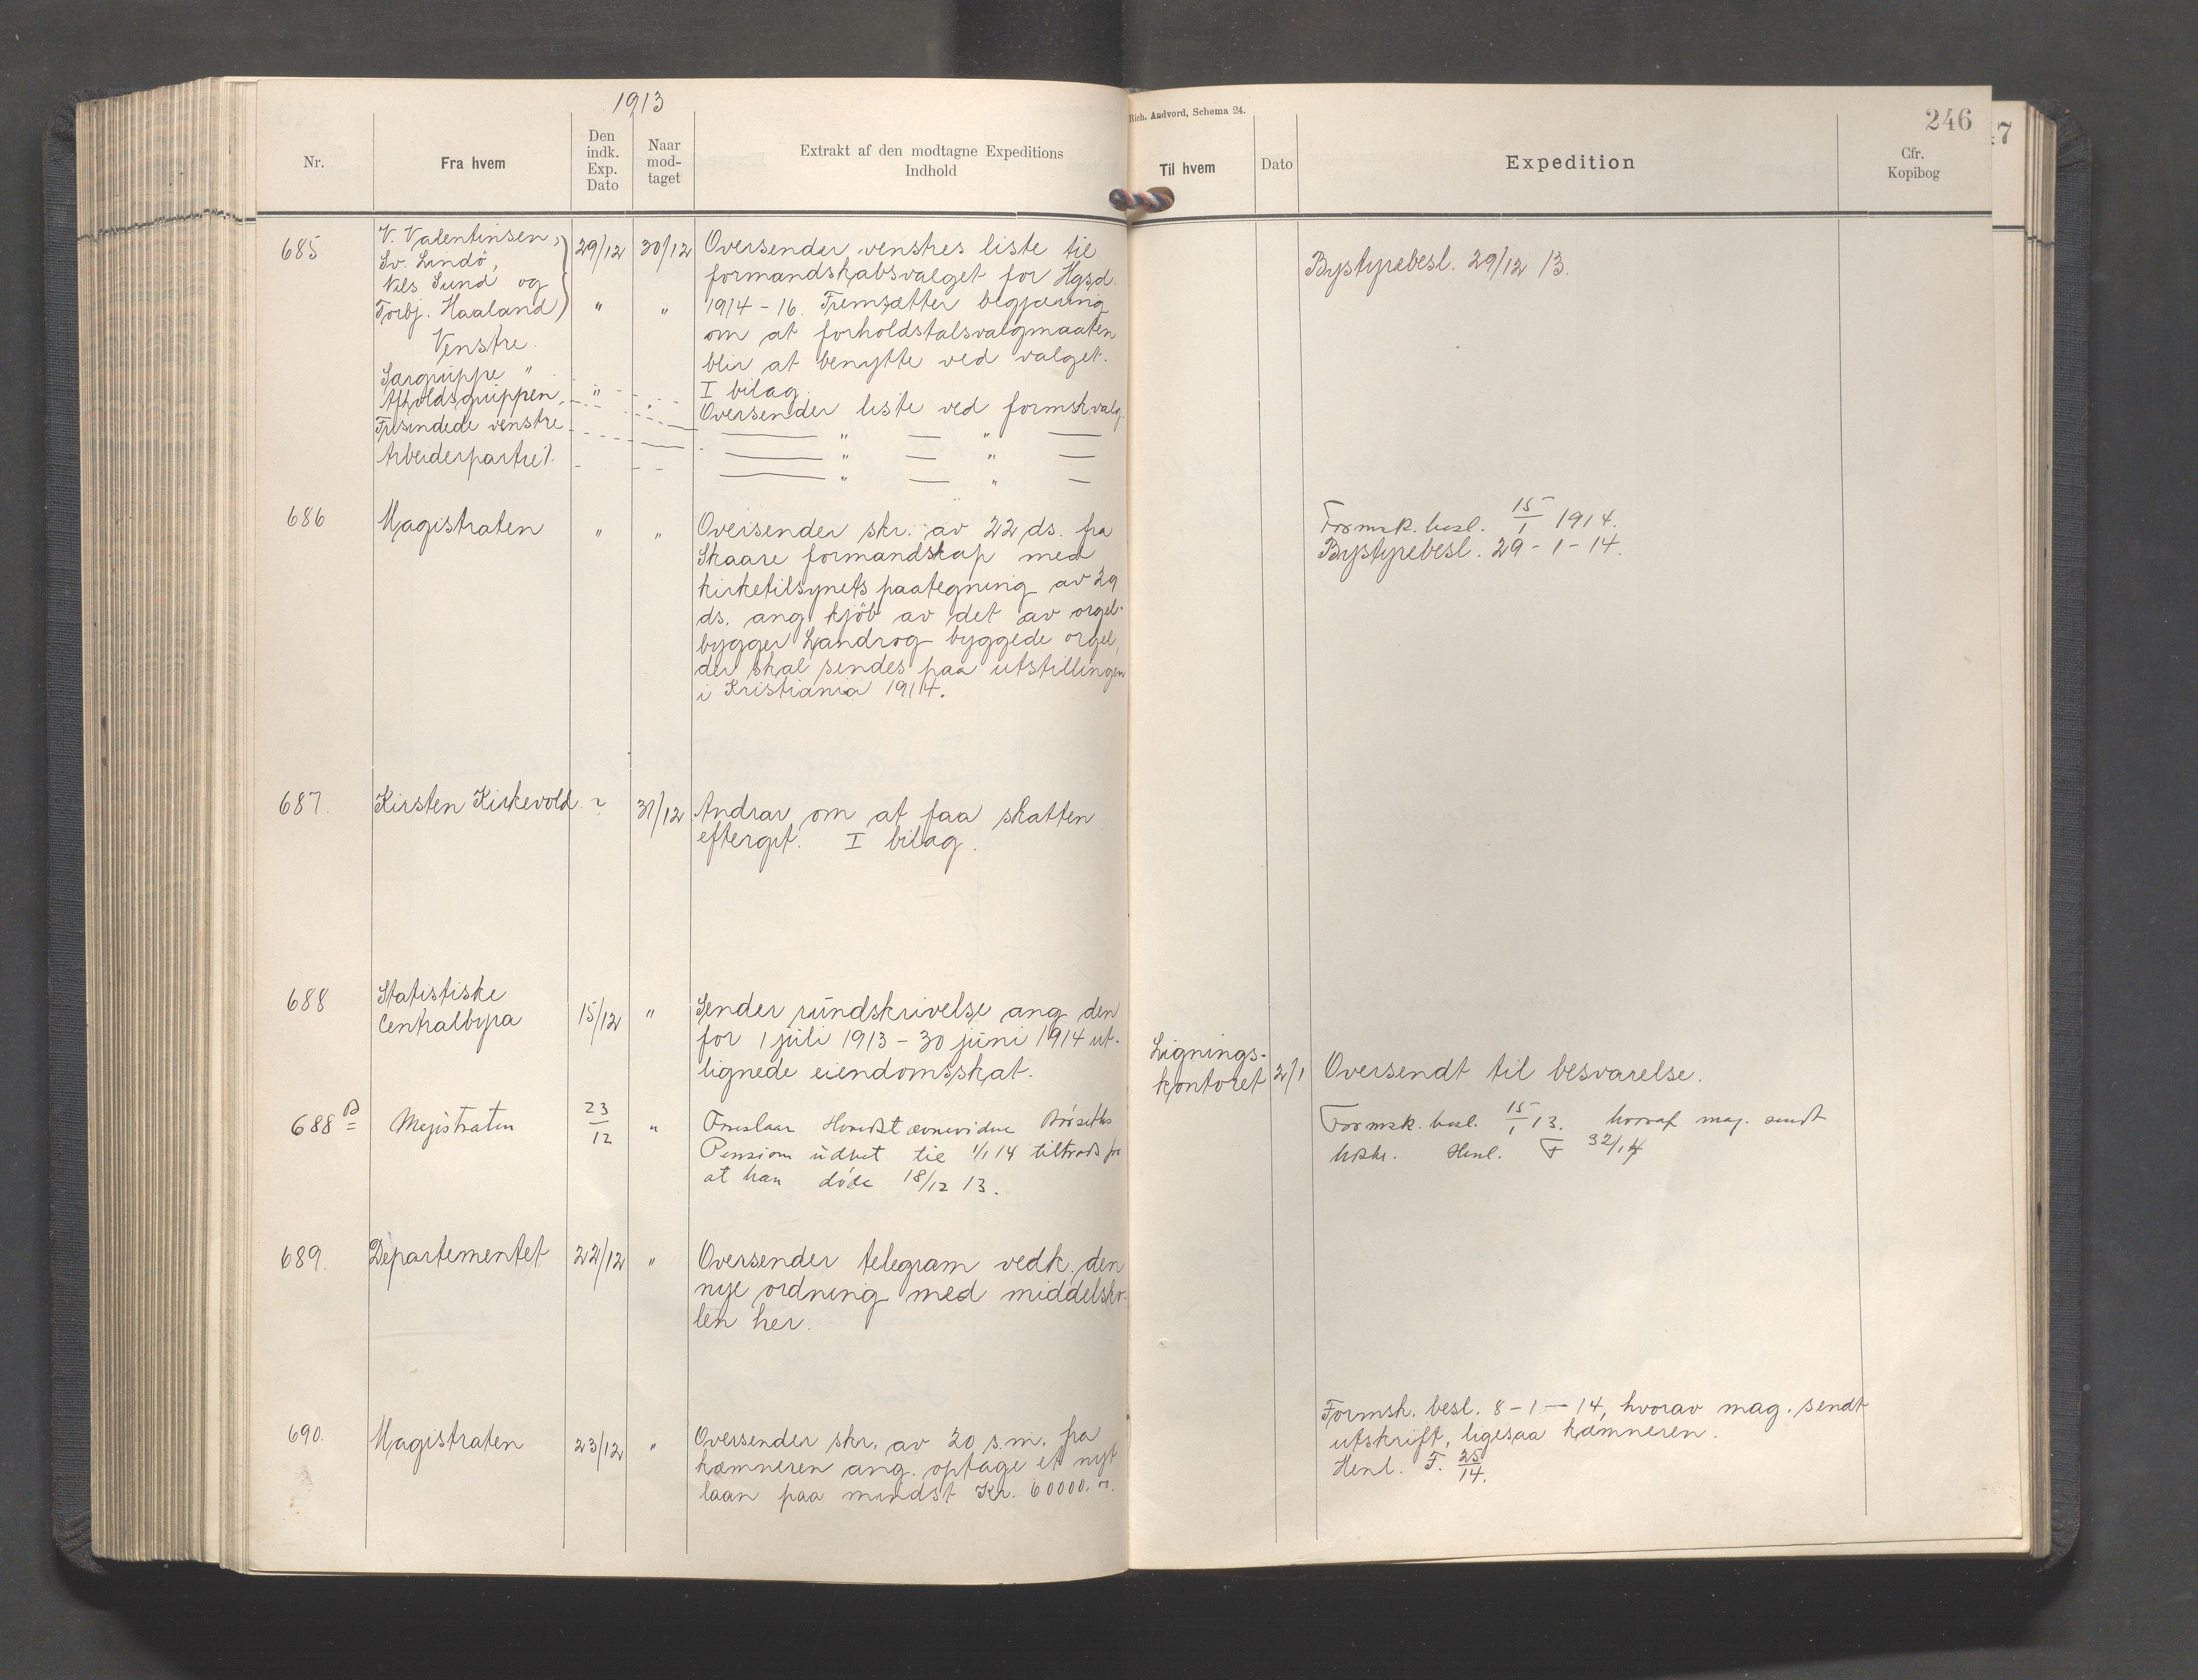 1913
Nr.
Fra hvem
Den indk. Exp. Dato
Naar mod-taget
Extrakt af den modtagne Expeditions Indhold
Rich. Andvord, Schema 24.
Til hvem
Dato
Expedition
246
Cfr. Kopibog
685
V. Valentinsen,
Sv. Lindö,
Nils Sund og
Torbj. Haaland)
Venstre.
Særgruppe "
Afholdsgruppen
Frisindede venstre
Arbeiderpartiet.
29/12 30/12
" "
Oversender venstres liste til
formandskabsvalget for Hgsd.
1914-16. Fremsætter begjæring
om at forholdstalsvalgmaaten
blir at benytte ved valget.
I bilag.
Oversender liste ved formskvalg.
" "
" "
" "
Bystyrebesl. 29/12 13.
686
Magistraten
" "
Oversender skr. av 22 ds. fra
Skaare formandskap med
kirketilsynets paategning av 29
ds. ang. kjöb av det av orgel-
bygger Landrog byggede orgel,
der skal sendes paa utstillingen
i Kristiania 1914.
Formsk. besl. 15/1 1914.
Bystyrebesl. 29-1-14.
687.
Kirsten Kirkevold
?
31/12
Andrar om at faa skatten
eftergit. I bilag.
688
Statistiske
Centralbyra
15/12 "
Sender rundskrivelse ang. den
for 1 juli 1913 - 30 juni 1914 ut-
lignede eiendomsskat.
Lignings-
kontoret
2/1
Oversendt til besvarelse.
688 B
Magistraten
23/12 "
Foreslaar
Pension udbet til 1/1 14 tiltrods for
at han döde 18/12 13.
Formsk. besl. 15/1 13. hvoraf mag. sendt
Utskr. Henl. F 32/14
689.
Departementet
22/12 "
Oversender telegram vedk. den
nye ordning med middelsko-
len her.
690.
Magistraten
23/12 "
Oversender skr. av 20 s.m. fra
kæmneren ang. optage et nyt
laan paa mindst Kr. 60000.
Formsk. besl. 8-1-14, hvorav mag. sendt
utskrift, ligesaa kæmneren.
Henl. F. 25/14.